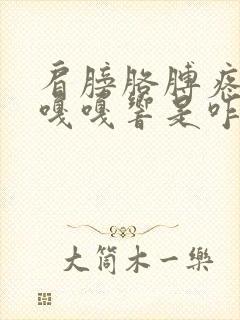 肩膀胳膊疼
嘎嘎響是咋
大筒木一樂